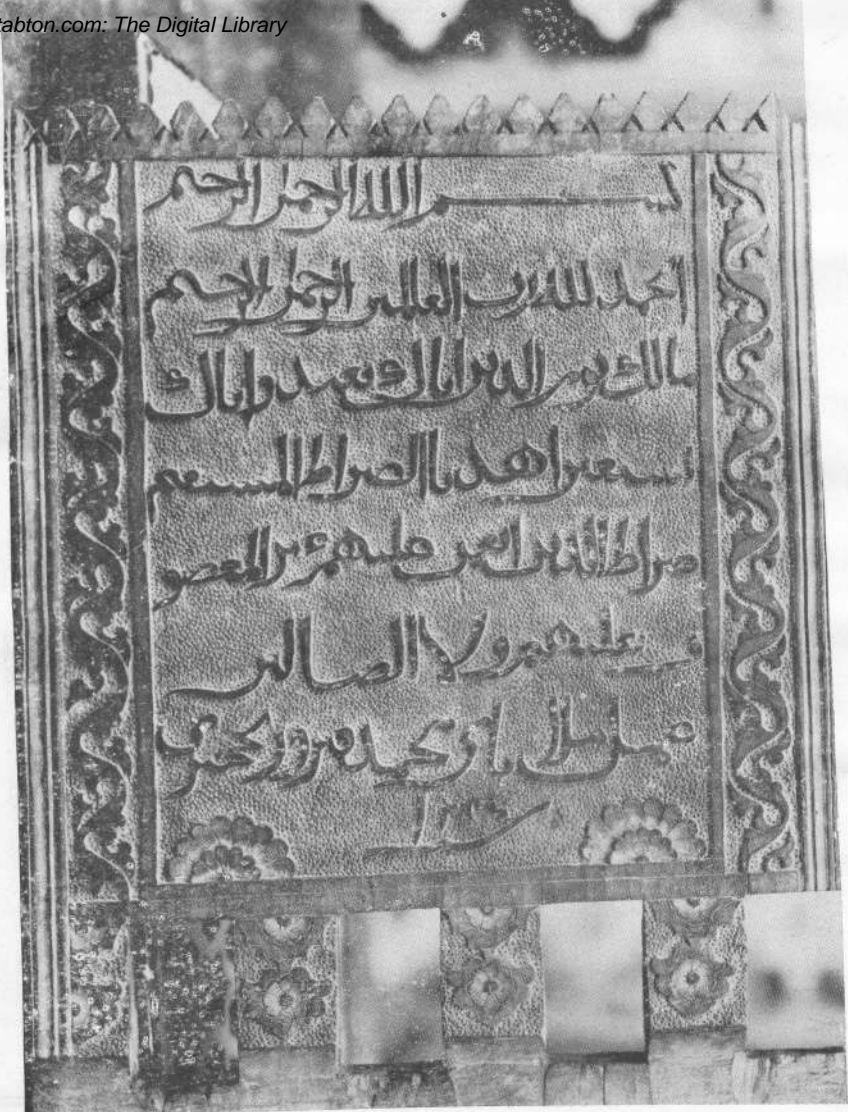 tabton.com: The Digital Library
بسم الله الرحمن الرحيم
الحمد لله رب العالمين الرحمن الرحيم
مالك يوم الدين اياك نعبد واياك
نستعين اهدنا الصراط المستقيم
صراط الذين انعمت عليهم غير المغضو
ب عليهم ولا الضالين
عمل
سنه